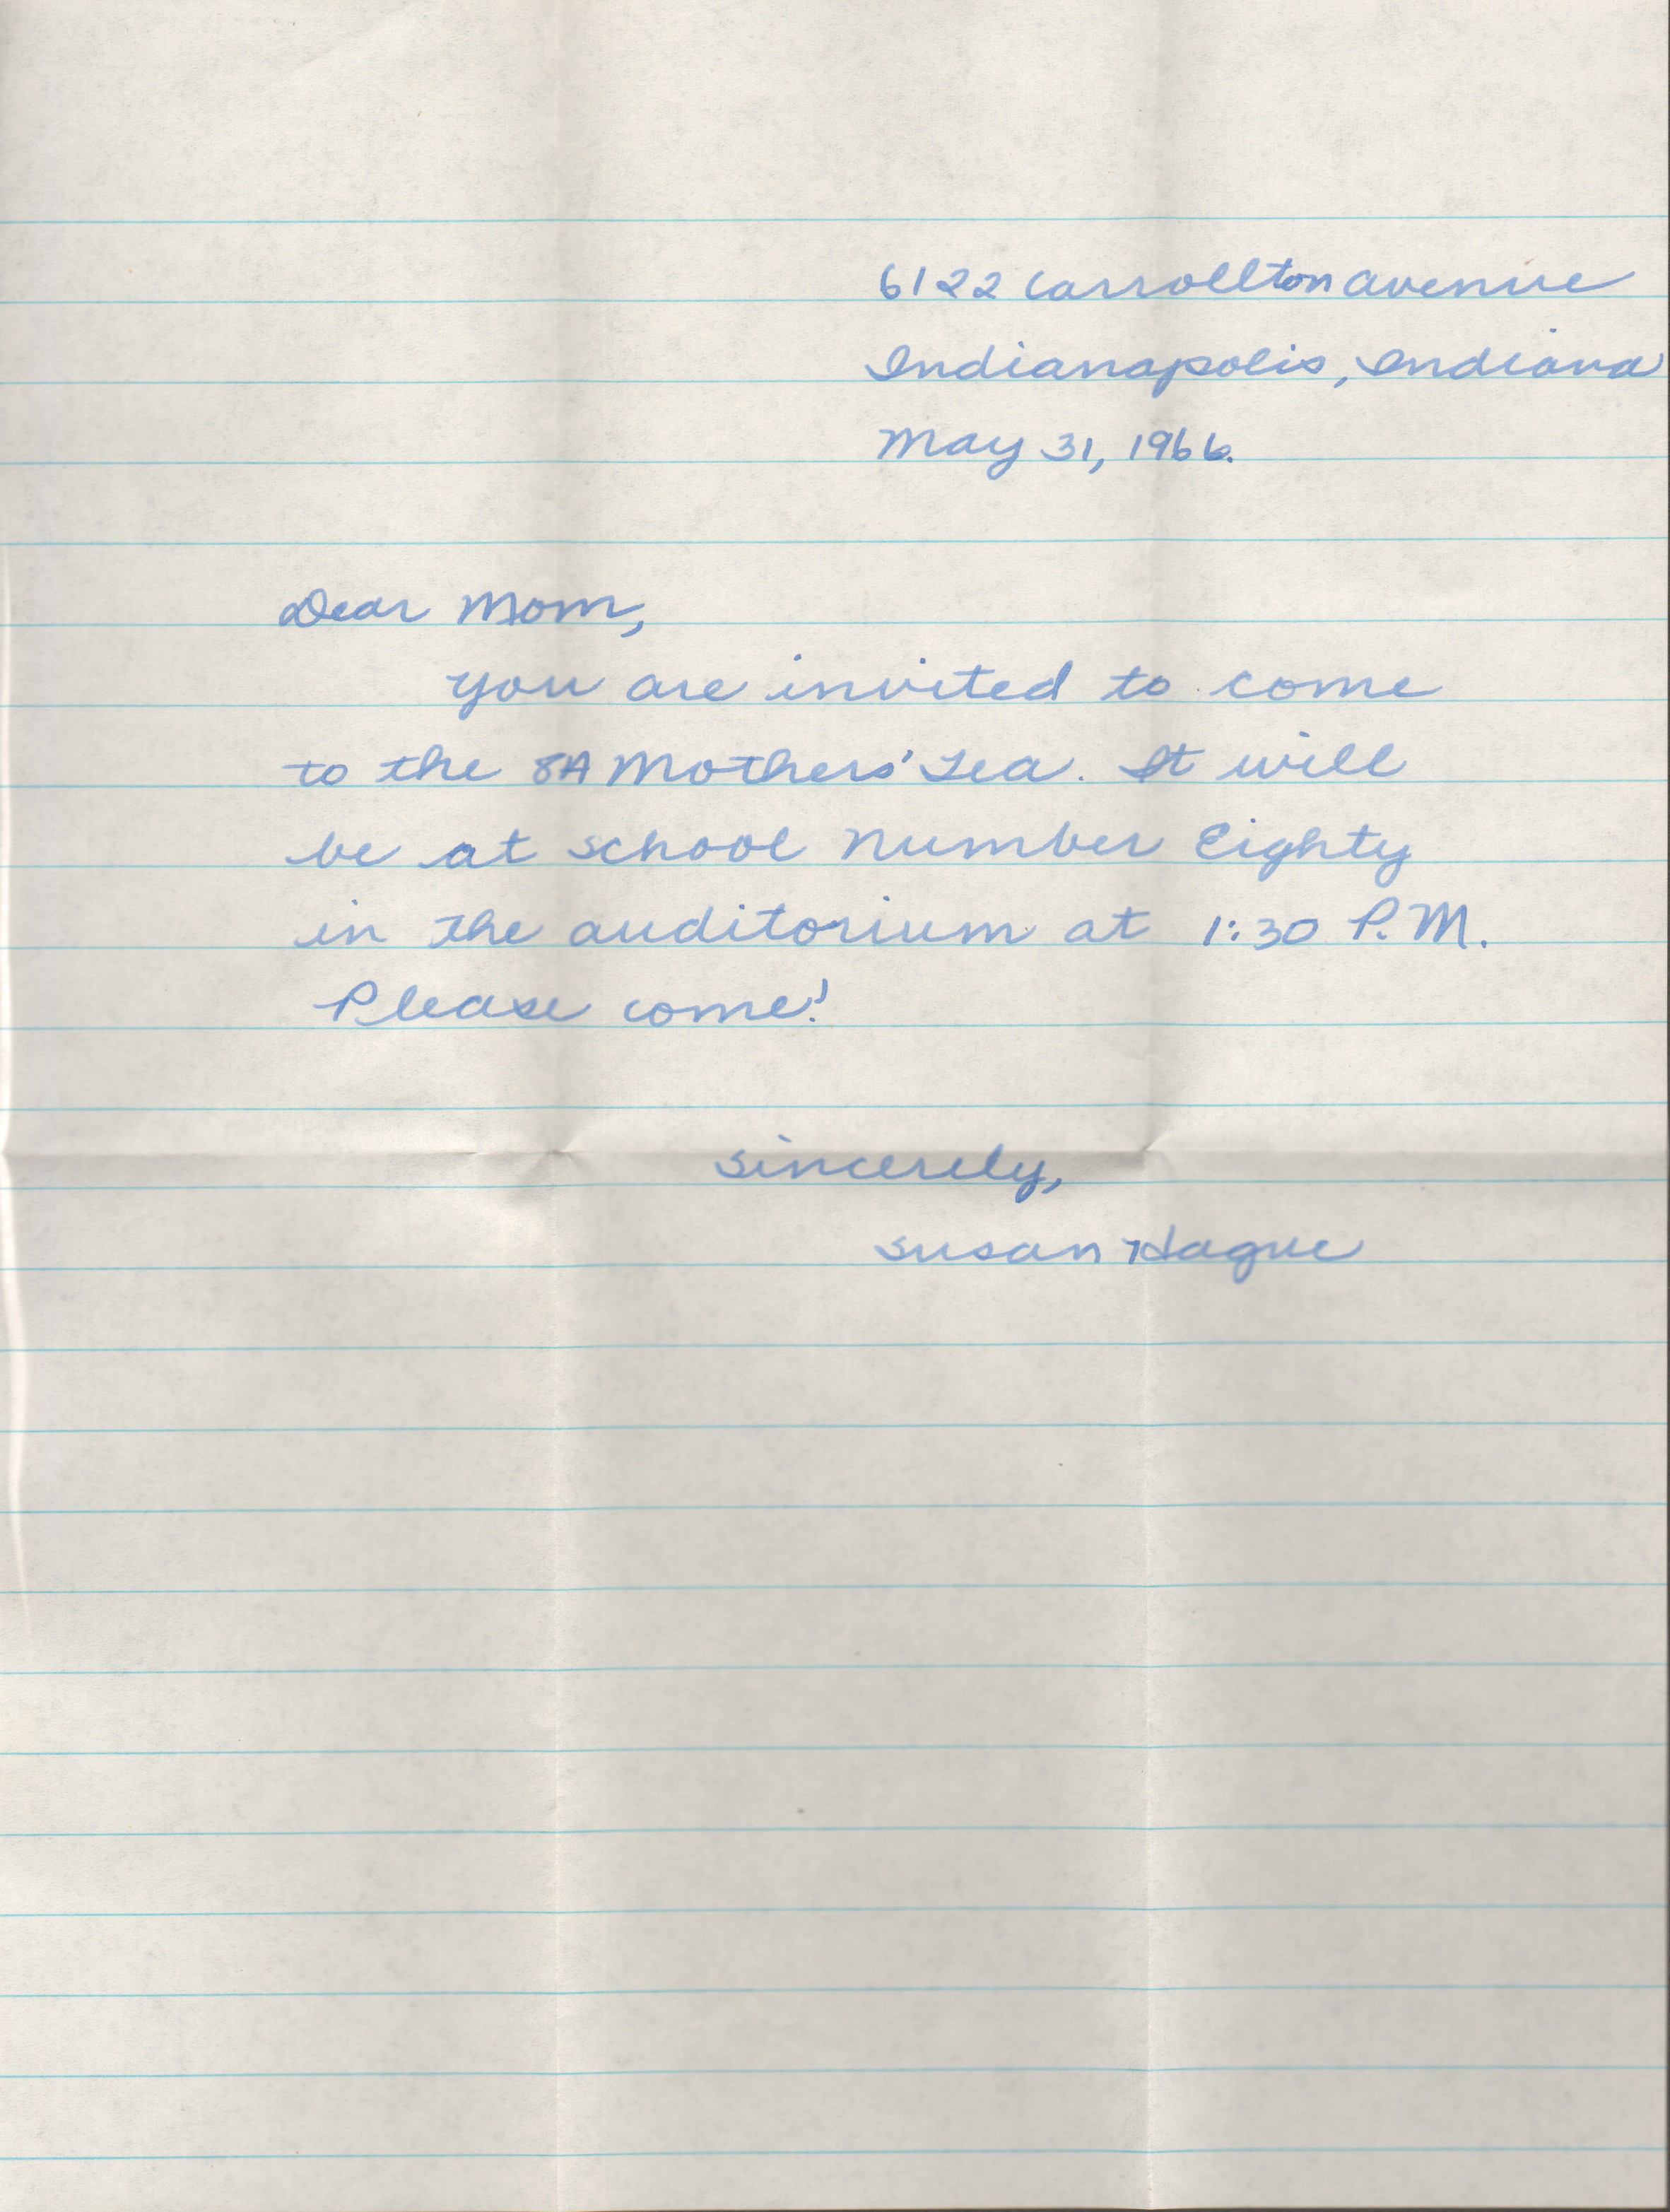 6122 Carrollton Avenue
Indianapolis, Indiana
May 31, 1966.
Dear Mom,
You are invited to come
to the 8A Mothers' Tea. It will
be at school Number Eighty
in the auditorium at 1:30 P.M.
Please come!
Sincerely,
Susan Hague